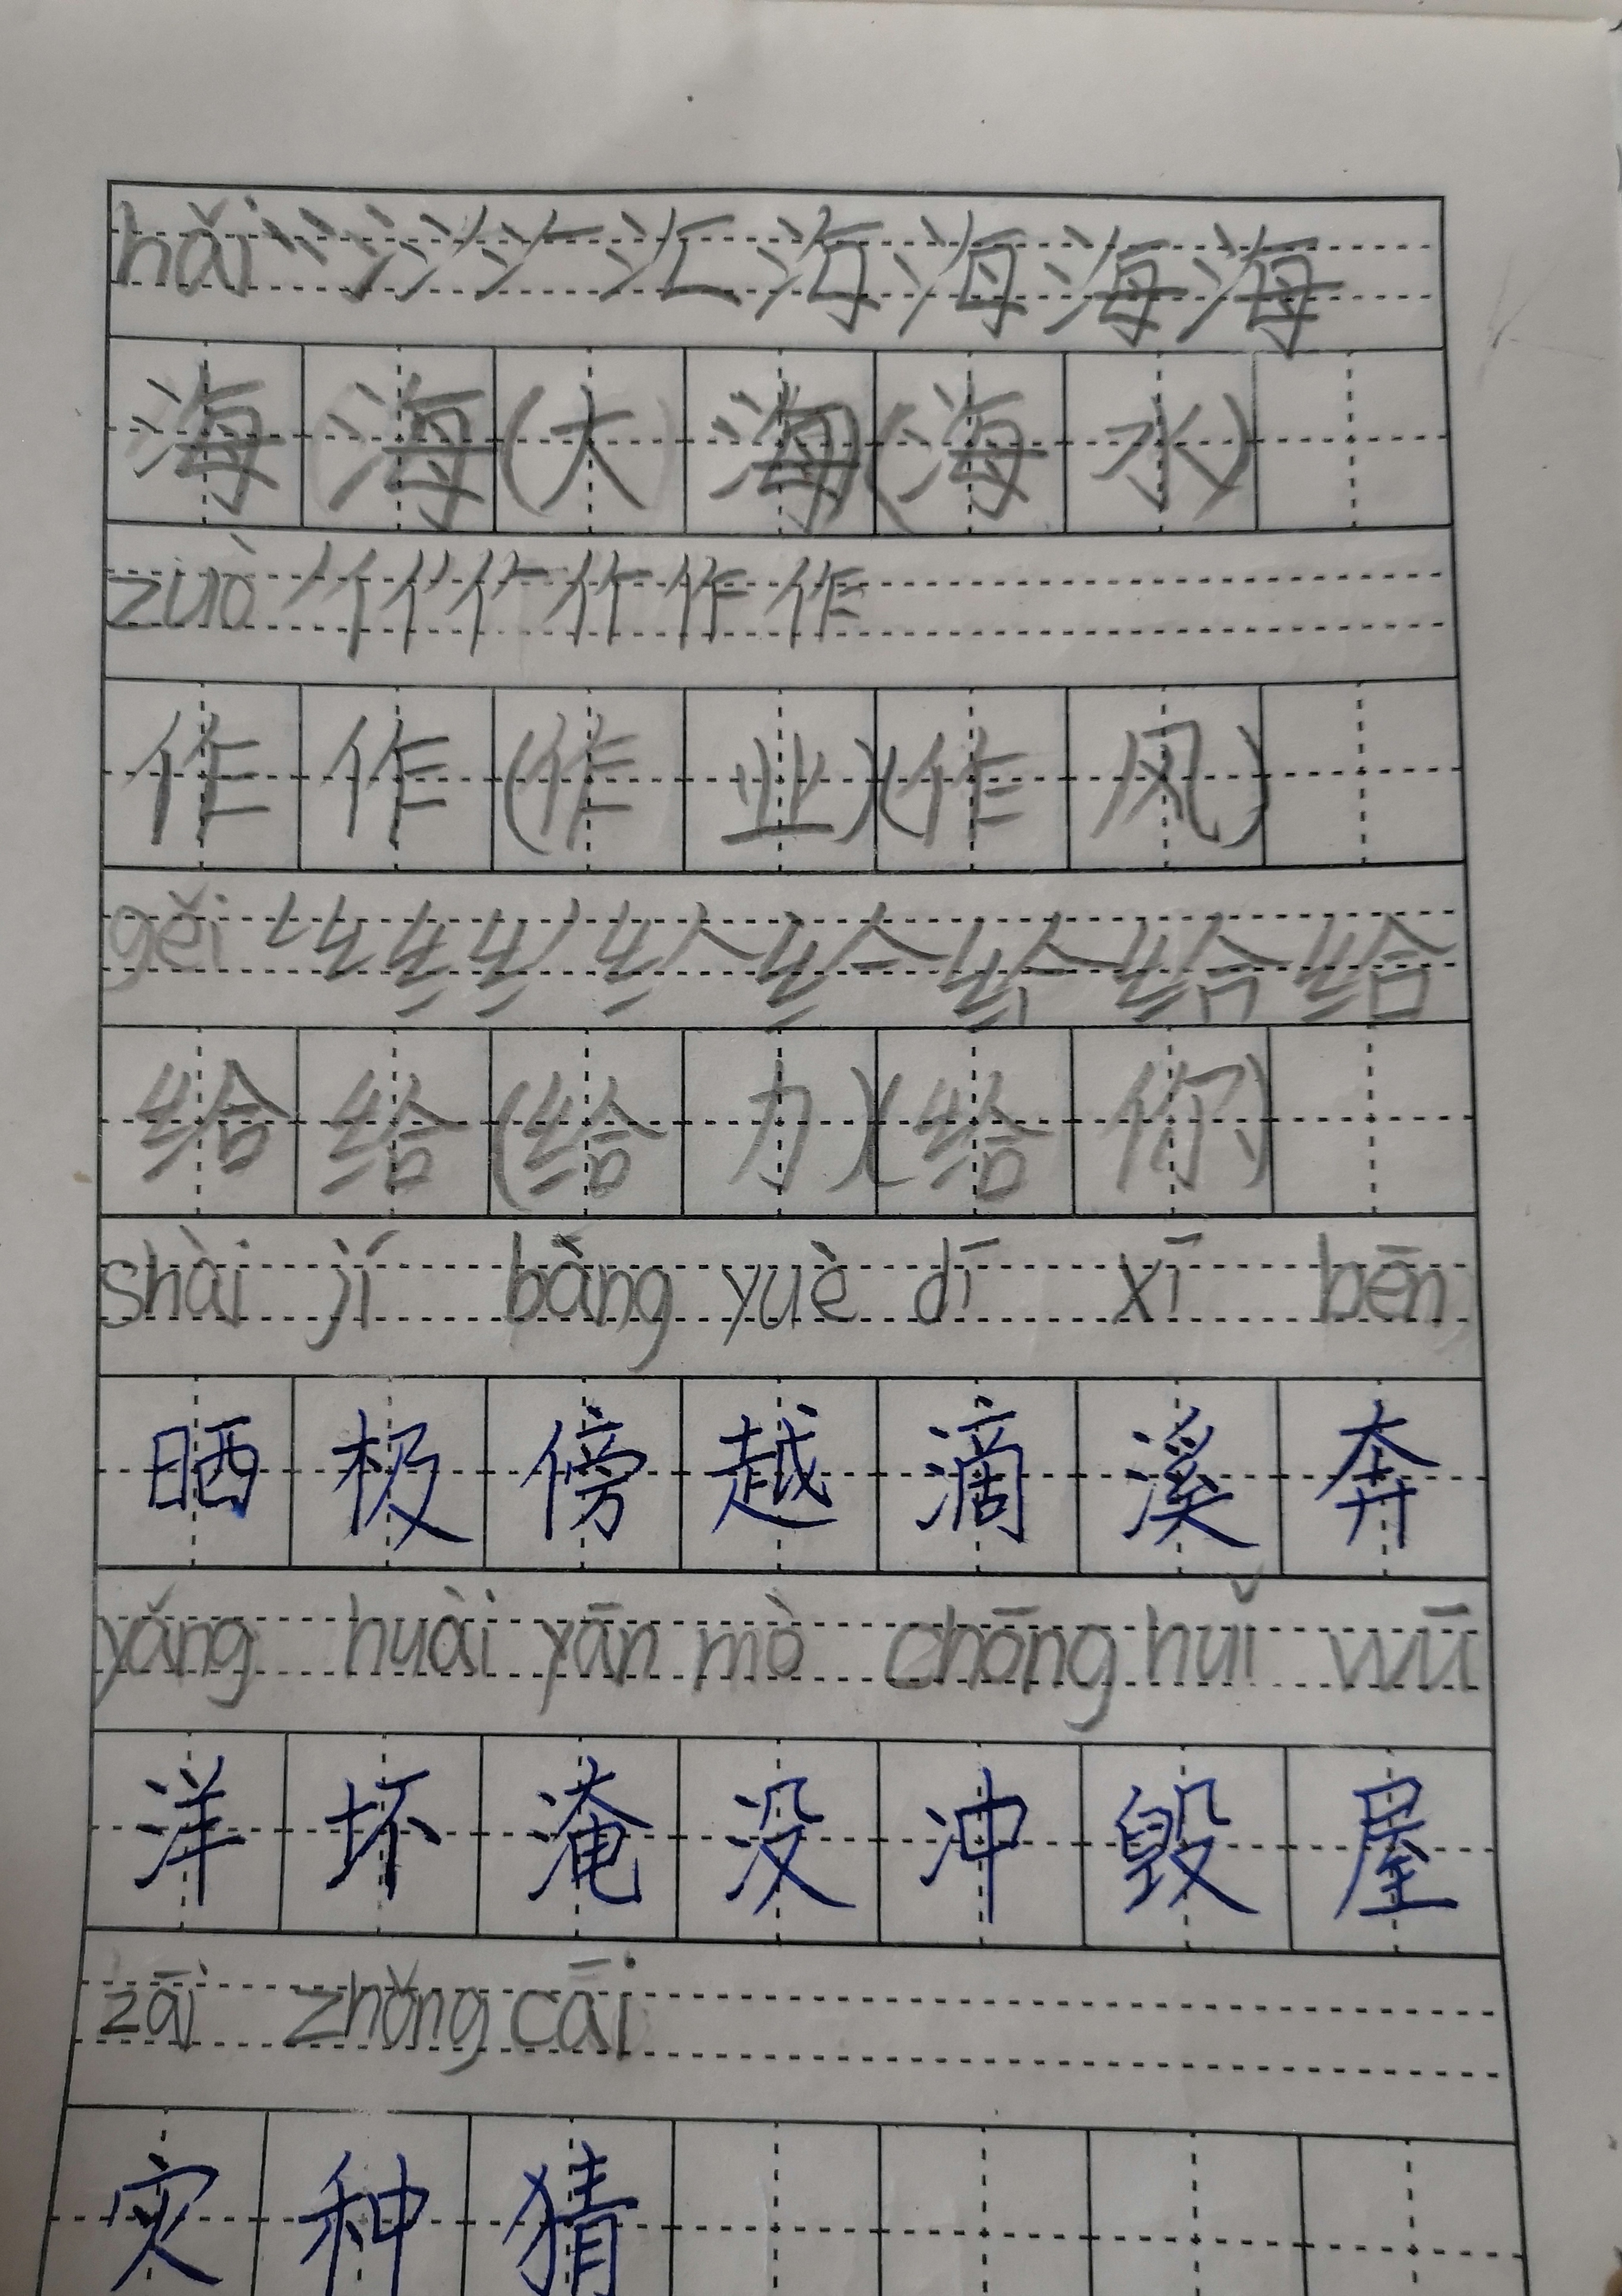 hǎi 丶 冫 氵 氵 氵 汇 海 海 海 海
海 海 (大 海) (海 水)
zuò 丿 亻 亻 亻 作 作 作
作 作 (作 业) (作 风)
gěi 纟 纟 纟 给 给 给
给 给 (给 力) (给 你)
shài jí bàng yuè dī xī bēn
晒 极 傍 越 滴 溪 奔
yáng huài yān mò chōng huǐ wū
洋 坏 淹 没 冲 毁 屋
zāi zhǒng cāi
灾 种 猜